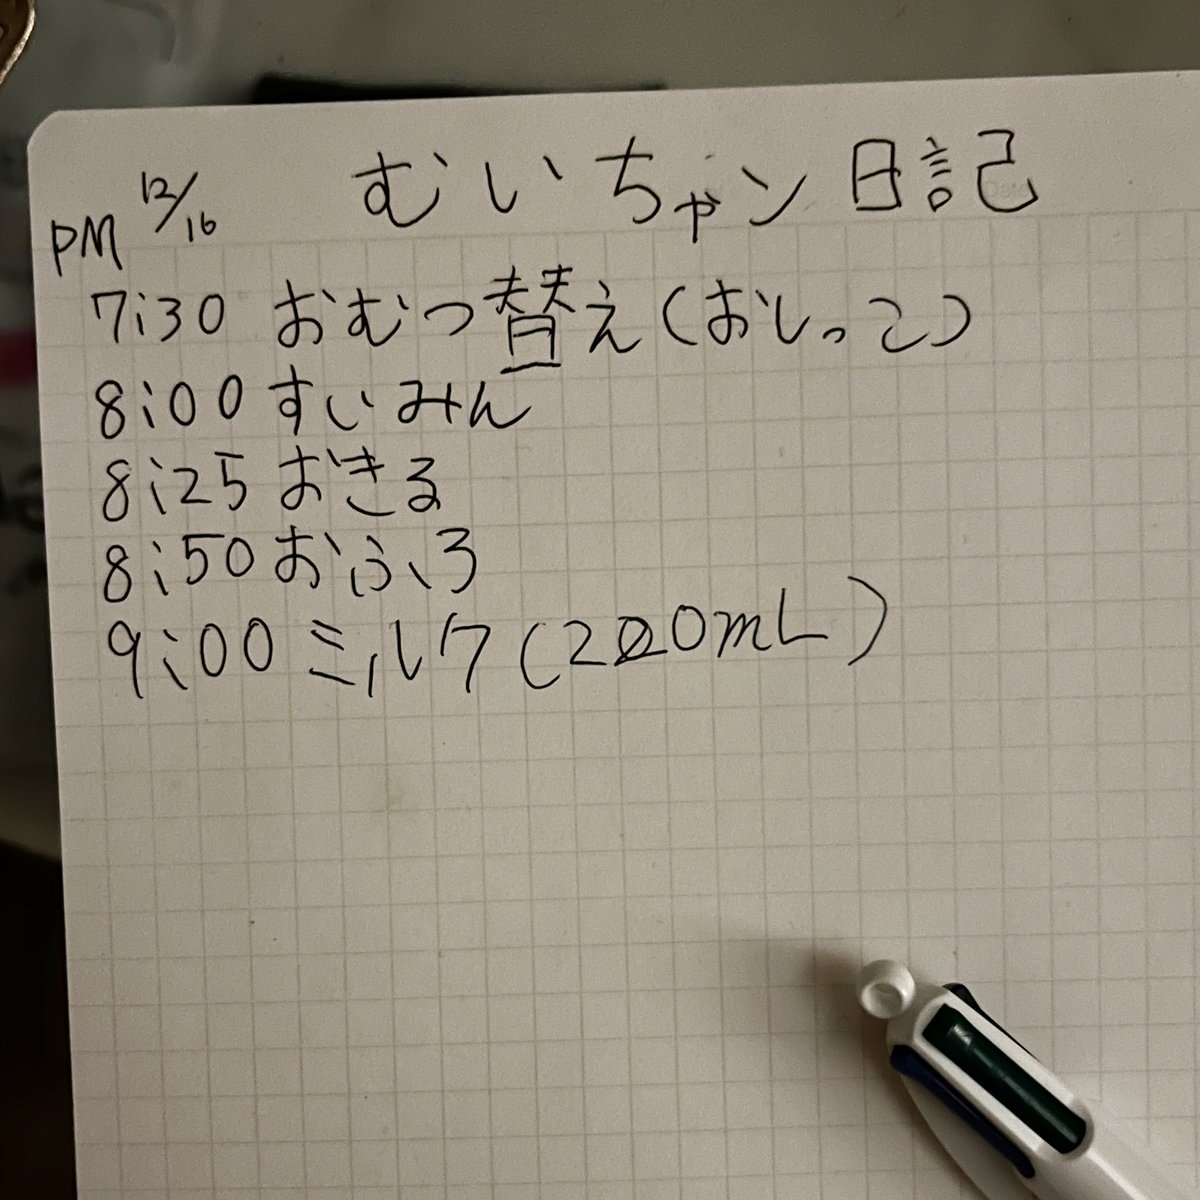 12/16 むいちゃン日記
PM
7:30 おむつ替え(おしっこ)
8:00 すいみん
8:25 おきる
8:50 おふろ
9:00 ミルク(220mL)